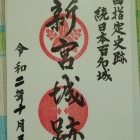 国指定史跡
続日本百名城
新宮城跡
令和二年十月